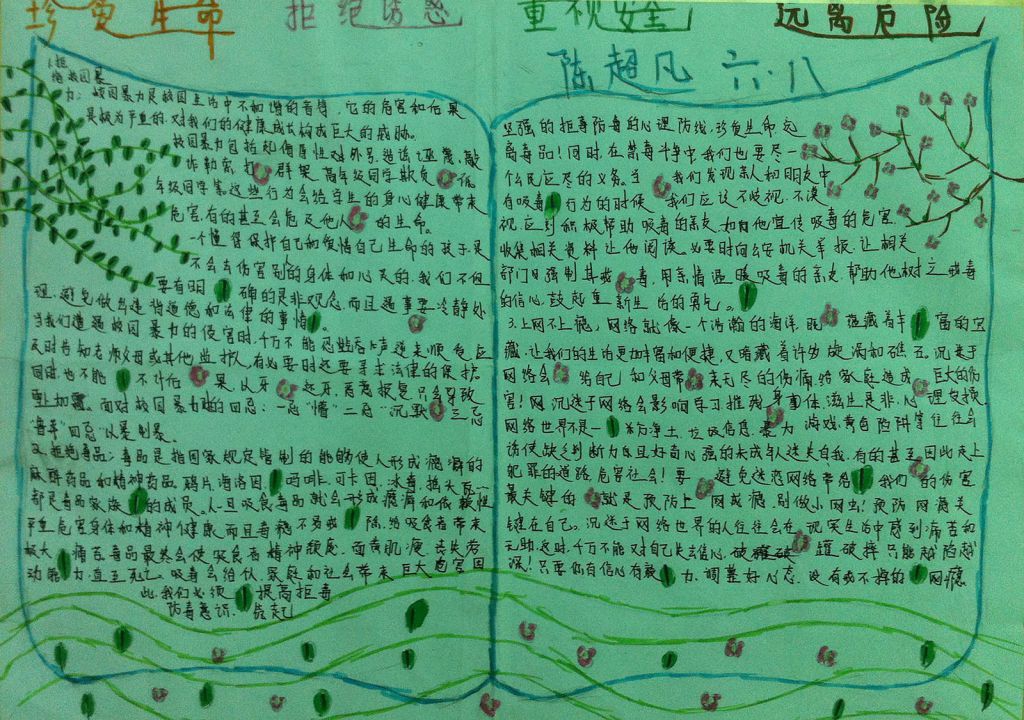 珍爱生命 拒绝诱惑 重视安全 远离危险
陈超凡 六·八
1.拒
绝校园暴
力:校园暴力是校园生活中不和谐的音符,它的危害和后果
是极为严重的,对我们的健康成长构成巨大的威胁。
校园暴力包括起侮辱性对外号,造谣诬蔑,敲
诈勒索,打群架,高年级同学欺负低
年级同学等,这些行为会给学生的身心健康带来
危害,有的甚至会危及他人的生命。
一个懂得保护自己和爱惜自己生命的孩子是
不会去伤害别的身体和心灵的,我们不但
要有明确的是非观念,而且遇事要冷静处
理,避免做出违背道德和法律的事情。
当我们遭遇校园暴力的侵害时,千万不能忍气吞声逆来顺受,应
及时告知老师父母或其他监护人,有必要时还要寻求法律的保护
同时,也不能不计后果,以牙还牙,蓄意报复只会导致
雪上加霜。面对校园暴力的四忌:一忌"惰"二忌"沉默"三忌
四忌"以暴制暴。
2.拒绝毒品:毒品是指国家规定管制的能够使人形成瘾癖的
麻醉药品和精神药品,鸦片,海洛因,吗啡,可卡因,冰毒,摇头丸
都是毒品家族的成员。人一旦吸食毒品就会形成瘾癖和依赖性
严重危害身体和精神健康,而且毒瘾不易戒除,给吸食者带来
极大痛苦,毒品最终会使吸食者精神颓废,面黄肌瘦,丧失劳
动能力,直至死亡。吸毒会给个人,家庭和社会带来巨大危害,因
此,我们必须提高拒毒
防毒意识,筑起
坚强的拒毒防毒的心理防线,珍爱生命,远
离毒品!同时,在禁毒斗争中,我们也要尽一
个公民应尽的义务。当我们发现亲人和朋友中
有吸毒行为的时候,我们应该不歧视,不漠
视,应积极帮助吸毒的亲友,如向他宣传吸毒的危害,
收集相关资料让他阅读,必要时向公安机关举报,让相关
部门强制其戒毒,用亲情温暖吸毒的亲友,帮助他树立戒毒
的信心,鼓起重新生活的勇气。
3.上网不上瘾:网络就像一个浩瀚的海洋,既蕴藏着丰富的宝
藏,让我们的生活更加丰富和便捷,又暗藏着许多旋涡和礁石,沉迷于
网络会给自己和父母带来无尽的伤痛,给家庭造成巨大的伤
害!网沉迷于网络会影响学习,摧残身体,滋生是非,心理受损
网络世界不是一方净土,垃圾信息,暴力游戏,黄色陷阱等往往会
诱使缺乏判断力而且好奇心强的未成年人迷失自我,有的甚至因此走上
犯罪的道路,危害社会!要避免迷恋网络带给我们的伤害
最关键的就是预防上网成瘾,别做小网虫!预防网瘾关
键在自己。沉迷于网络世界的人往往会在现实生活中感到痛苦和
无助,这时,千万不能对自己失去信心,破罐破摔只能越陷越
深!只要你有信心有毅力,调整好心态,没有戒不掉的网瘾